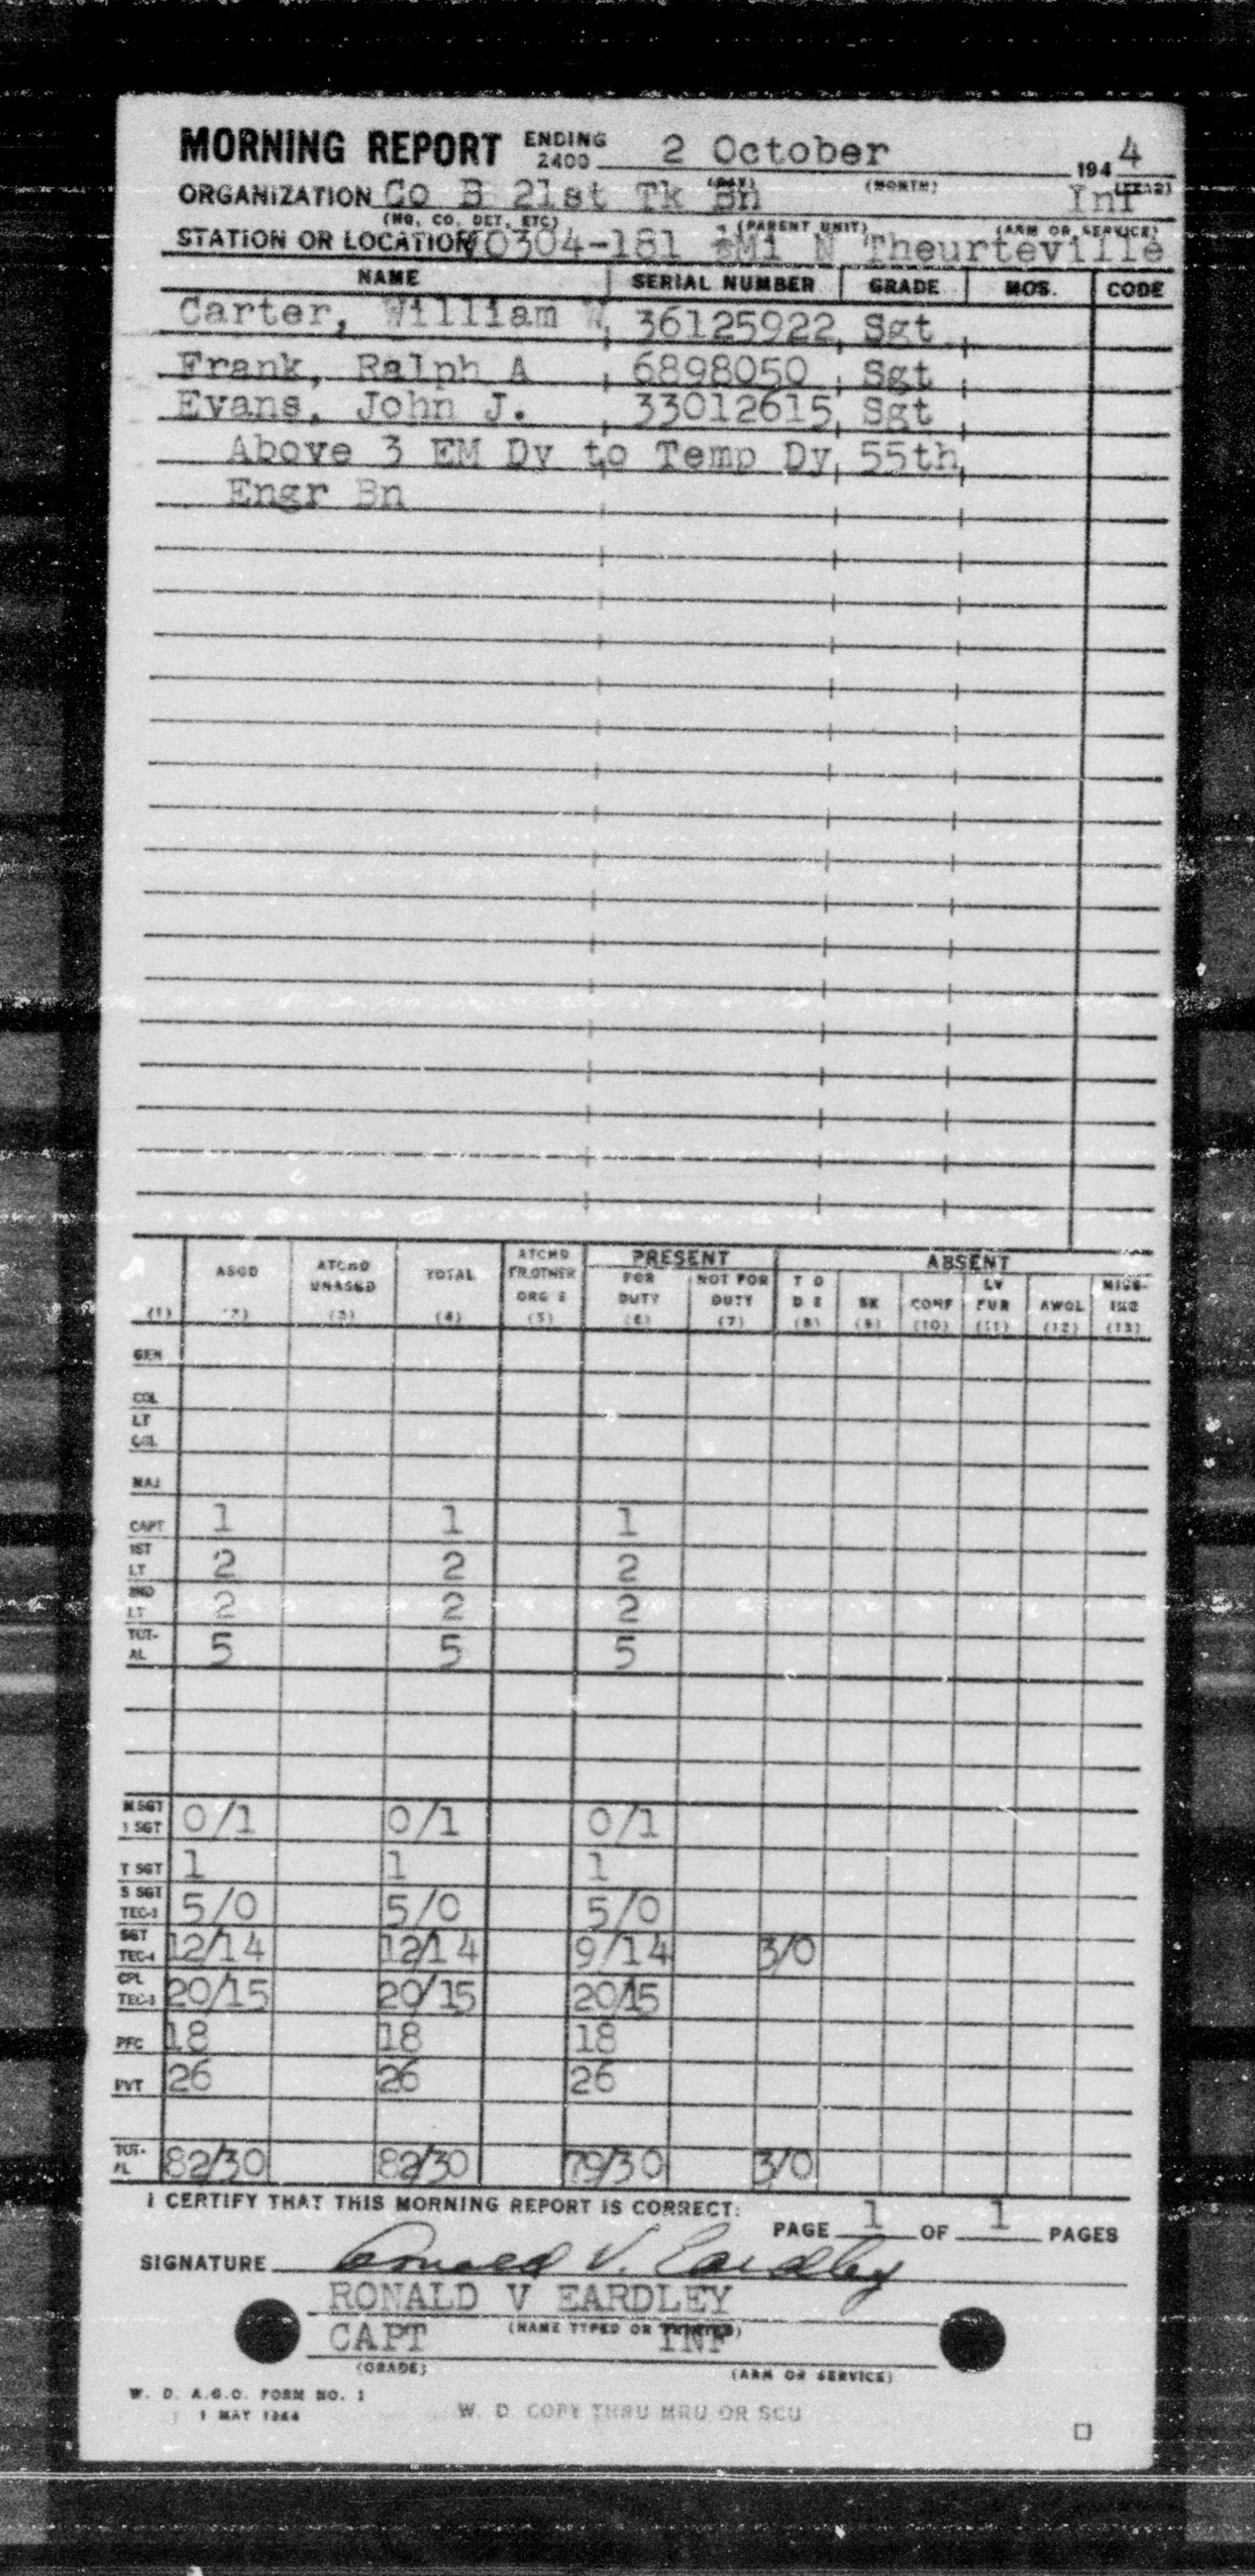 MORNING REPORT ENDING 2400 2 October 1944
(DAY) (MONTH) (YEAR)
ORGANIZATION Co B 21st Tk Bn Inf
(HQ, CO, DET, ETC) (PARENT UNIT) (ARM OR SERVICE)
STATION OR LOCATION VO304-181 Mi N Theurteville
NAME SERIAL NUMBER GRADE MOS. CODE
Carter, William W 36125922 Sgt
Frank, Ralph A 6898050 Sgt
Evans, John J. 33012615 Sgt
Above 3 EM Dy to Temp Dy 55th
Engr Bn
PRESENT ABSENT
ASGD ATCHD UNASGD TOTAL ATCHD FR.OTHER ORG S FOR DUTY NOT FOR DUTY T D D S SK CONF LV FUR AWOL MISS-ING
(1) (2) (3) (4) (5) (6) (7) (8) (9) (10) (11) (12) (13)
GEN
COL
LT COL
MAJ
CAPT 1 1 1
1ST LT 2 2 2
2ND LT 2 2 2
TOT-AL 5 5 5
M SGT 1 SGT 0/1 0/1 0/1
T SGT 1 1 1
S SGT TEC-3 5/0 5/0 5/0
SGT TEC-4 12/14 12/14 9/14 3/0
CPL TEC-5 20/15 20/15 20/15
PFC 18 18 18
PVT 26 26 26
TOT-AL 82/30 82/30 79/30 3/0
I CERTIFY THAT THIS MORNING REPORT IS CORRECT:
PAGE 1 OF 1 PAGES
SIGNATURE Ronald V. Eardley
RONALD V EARDLEY
(NAME TYPED OR PRINTED)
CAPT INF
(GRADE) (ARM OR SERVICE)
W. D. A.G.O. FORM NO. 1
1 MAY 1944
W. D. COPY THRU MRU OR SCU